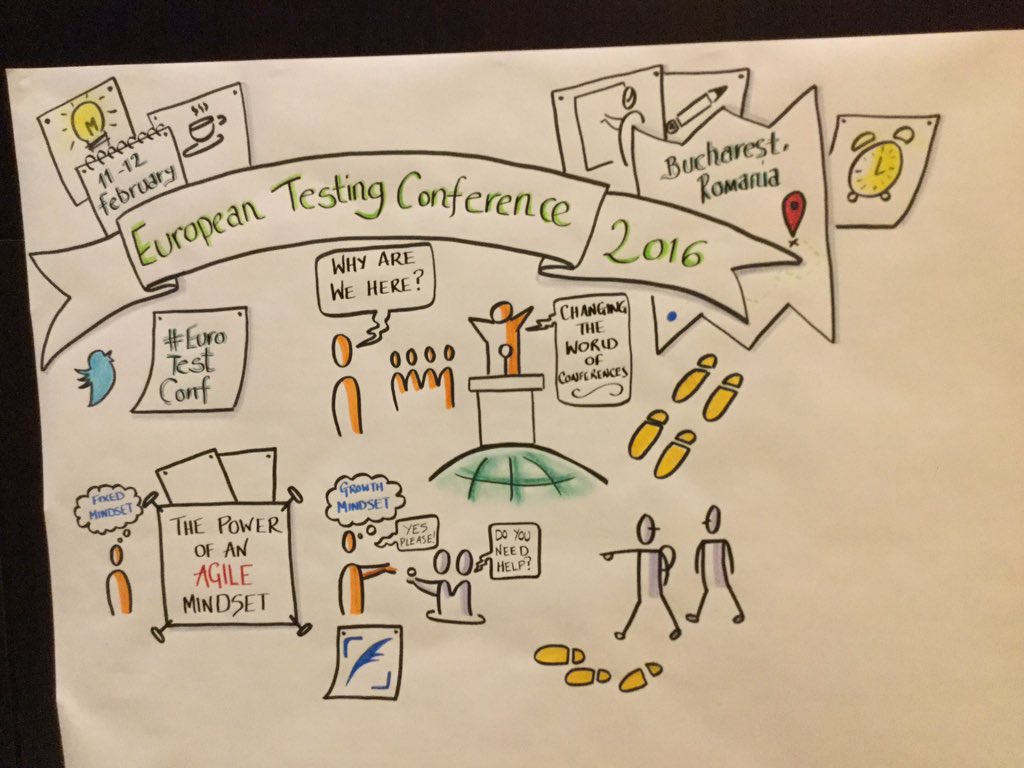 M
11-12
february
European Testing Conference
2016
Bucharest,
Romania
#Euro
Test
Conf
WHY ARE
WE HERE?
CHANGING
THE
WORLD
OF
CONFERENCES
FIXED
MINDSET
THE POWER
OF AN
AGILE
MINDSET
GROWTH
MINDSET
YES
PLEASE!
DO YOU
NEED
HELP?